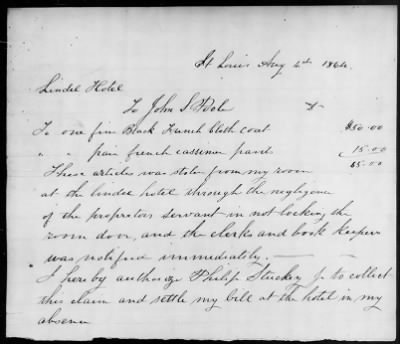 St Louis Aug 4th 1864.
Lindel Hotel
To John S Dr
To one fine Black French Cloth coat $50.00
" " pair french cassimer pants 15.00
65.00
These articles was stolen from my room
at the lindel hotel through the neglegence
of the propretors servant in not locking the
room door, and the clerks and book keeper
was notified immediately.
I here by authorize Philip Stuckey Jr to collect
this claim and settle my bill at the hotel in my
absence